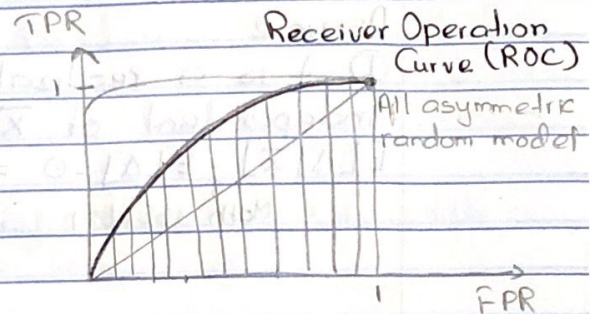 TPR
Receiver Operation
Curve (ROC)
1
All asymmetric
random model
1
FPR